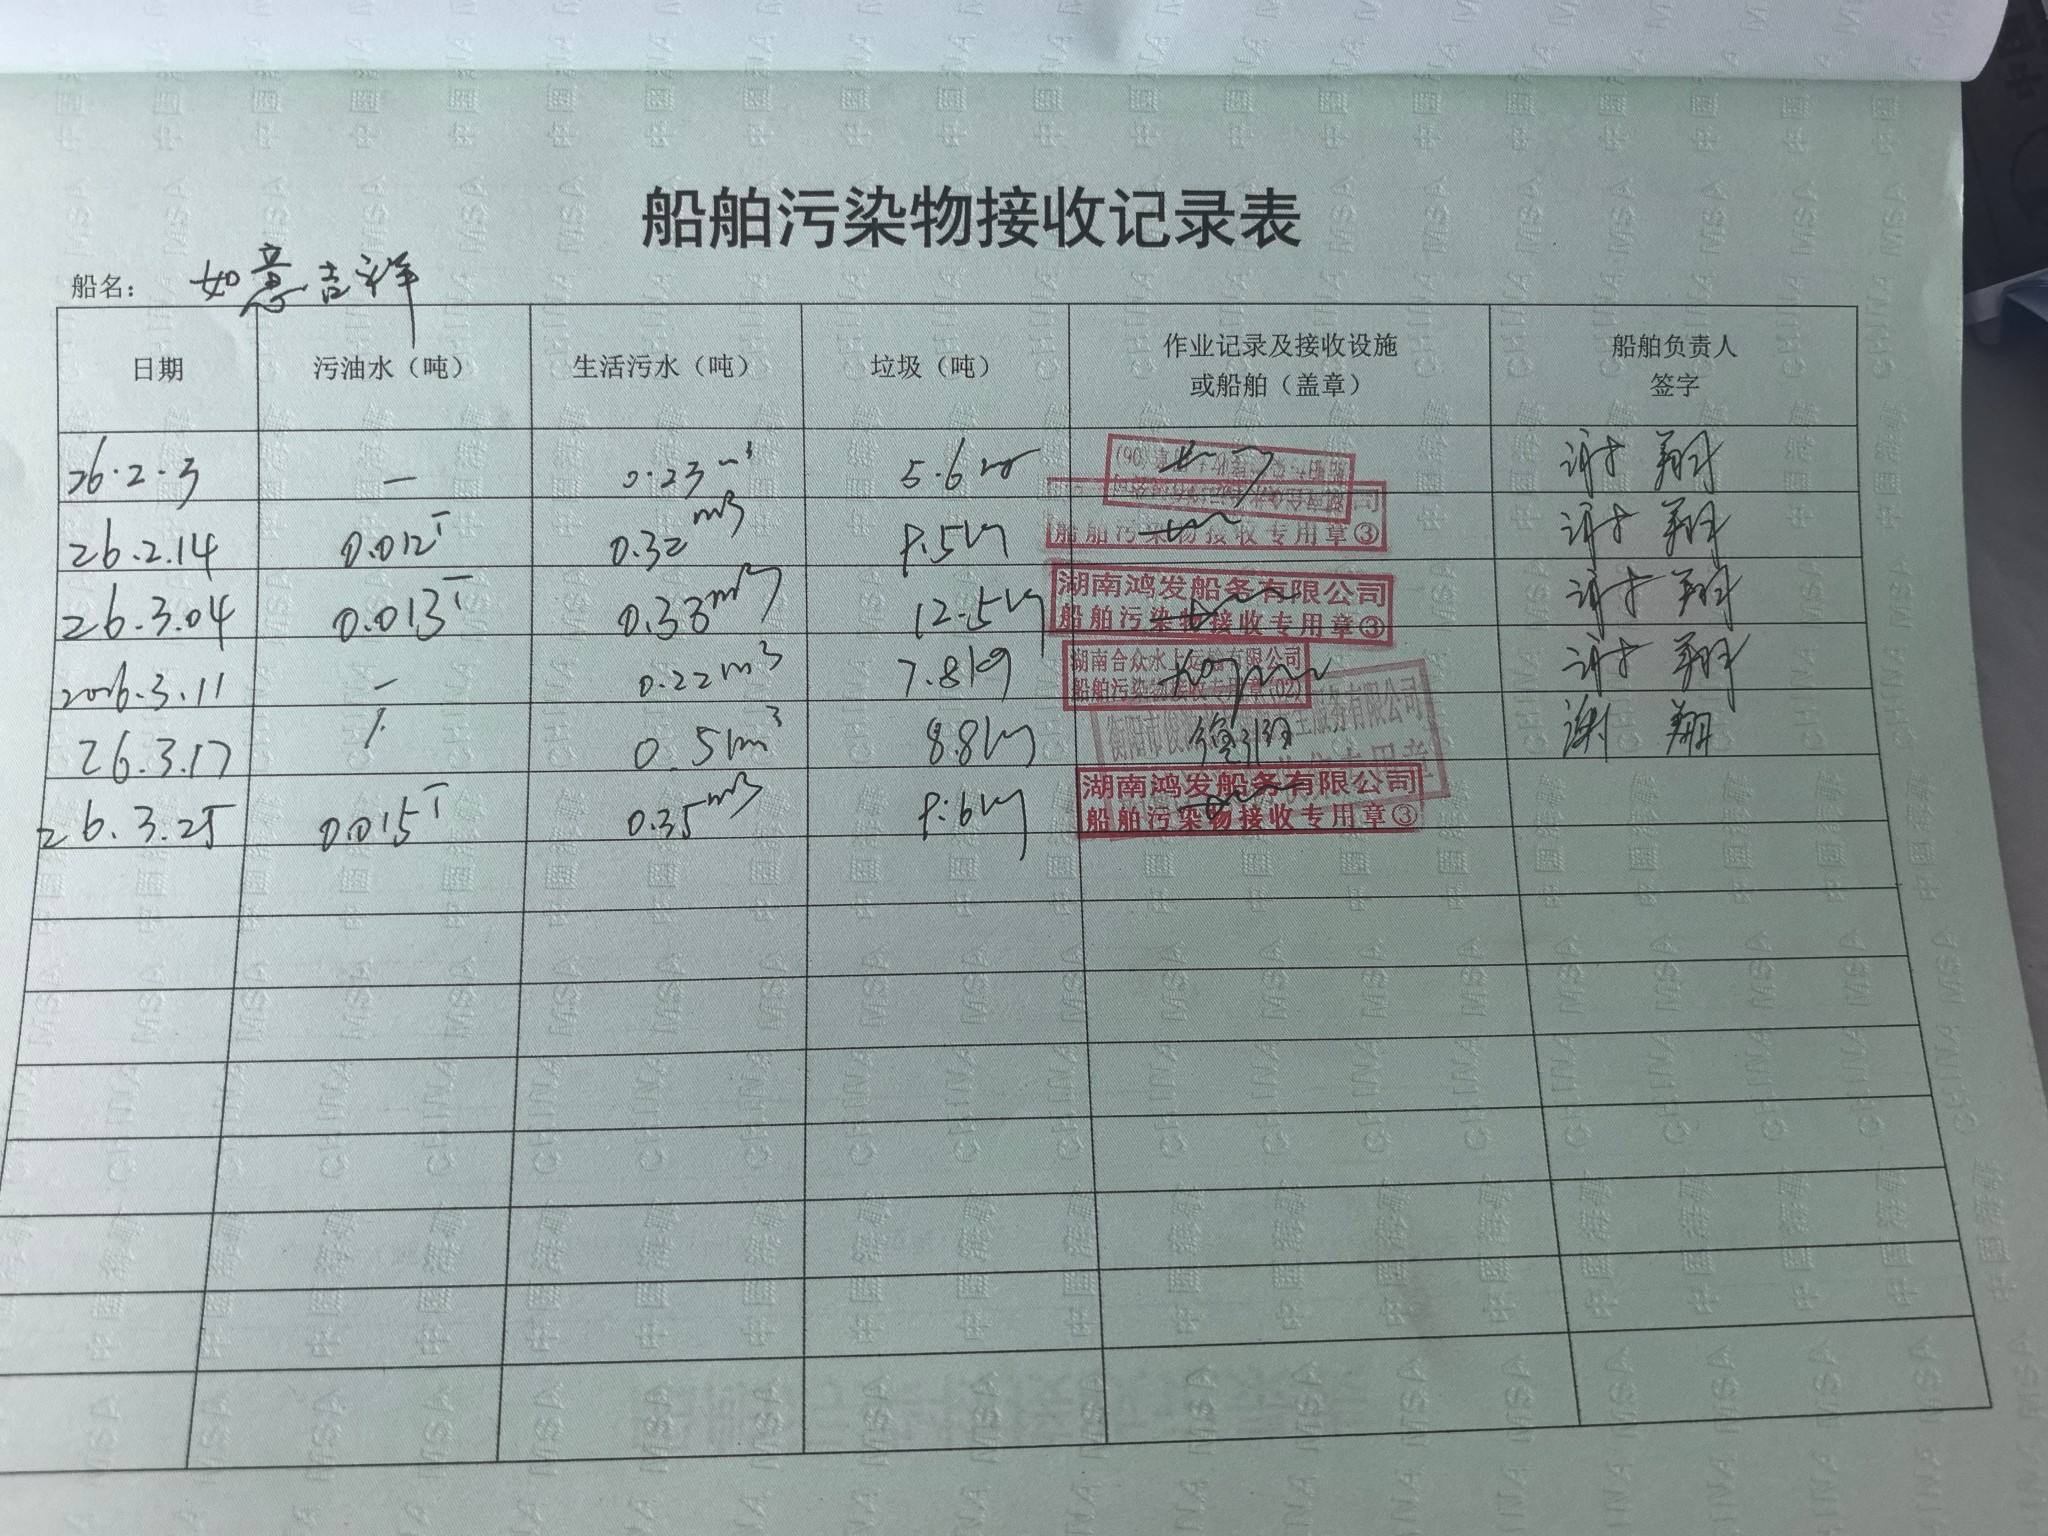 船舶污染物接收记录表
船名： 如意吉祥
日期 污油水（吨） 生活污水（吨） 垃圾（吨） 作业记录及接收设施或船舶（盖章） 船舶负责人签字
26.2.3 — 0.23m³ 5.6 谢翔
26.2.14 0.012T 0.32m³ 9.5kg 船舶污染物接收专用章③ 谢翔
26.3.04 0.013T 0.33m³ 12.5kg 湖南鸿发船务有限公司 船舶污染物接收专用章③ 谢翔
2026.3.11 — 0.22m³ 7.8kg 湖南合众水上运输有限公司 船舶污染物接收专用章(02) 谢翔
26.3.17 / 0.51m³ 8.8kg 衡阳市 服务有限公司 专用章 谢翔
26.3.25 0.015T 0.35m³ 9.6kg 湖南鸿发船务有限公司 船舶污染物接收专用章③